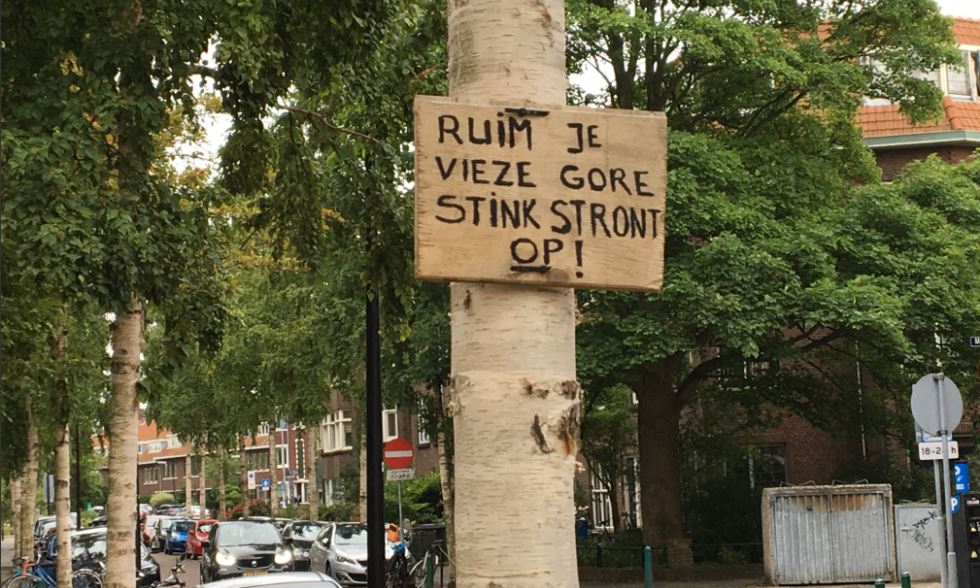 RUIM JE
VIEZE GORE
STINK STRONT
OP!
18-2 h
P